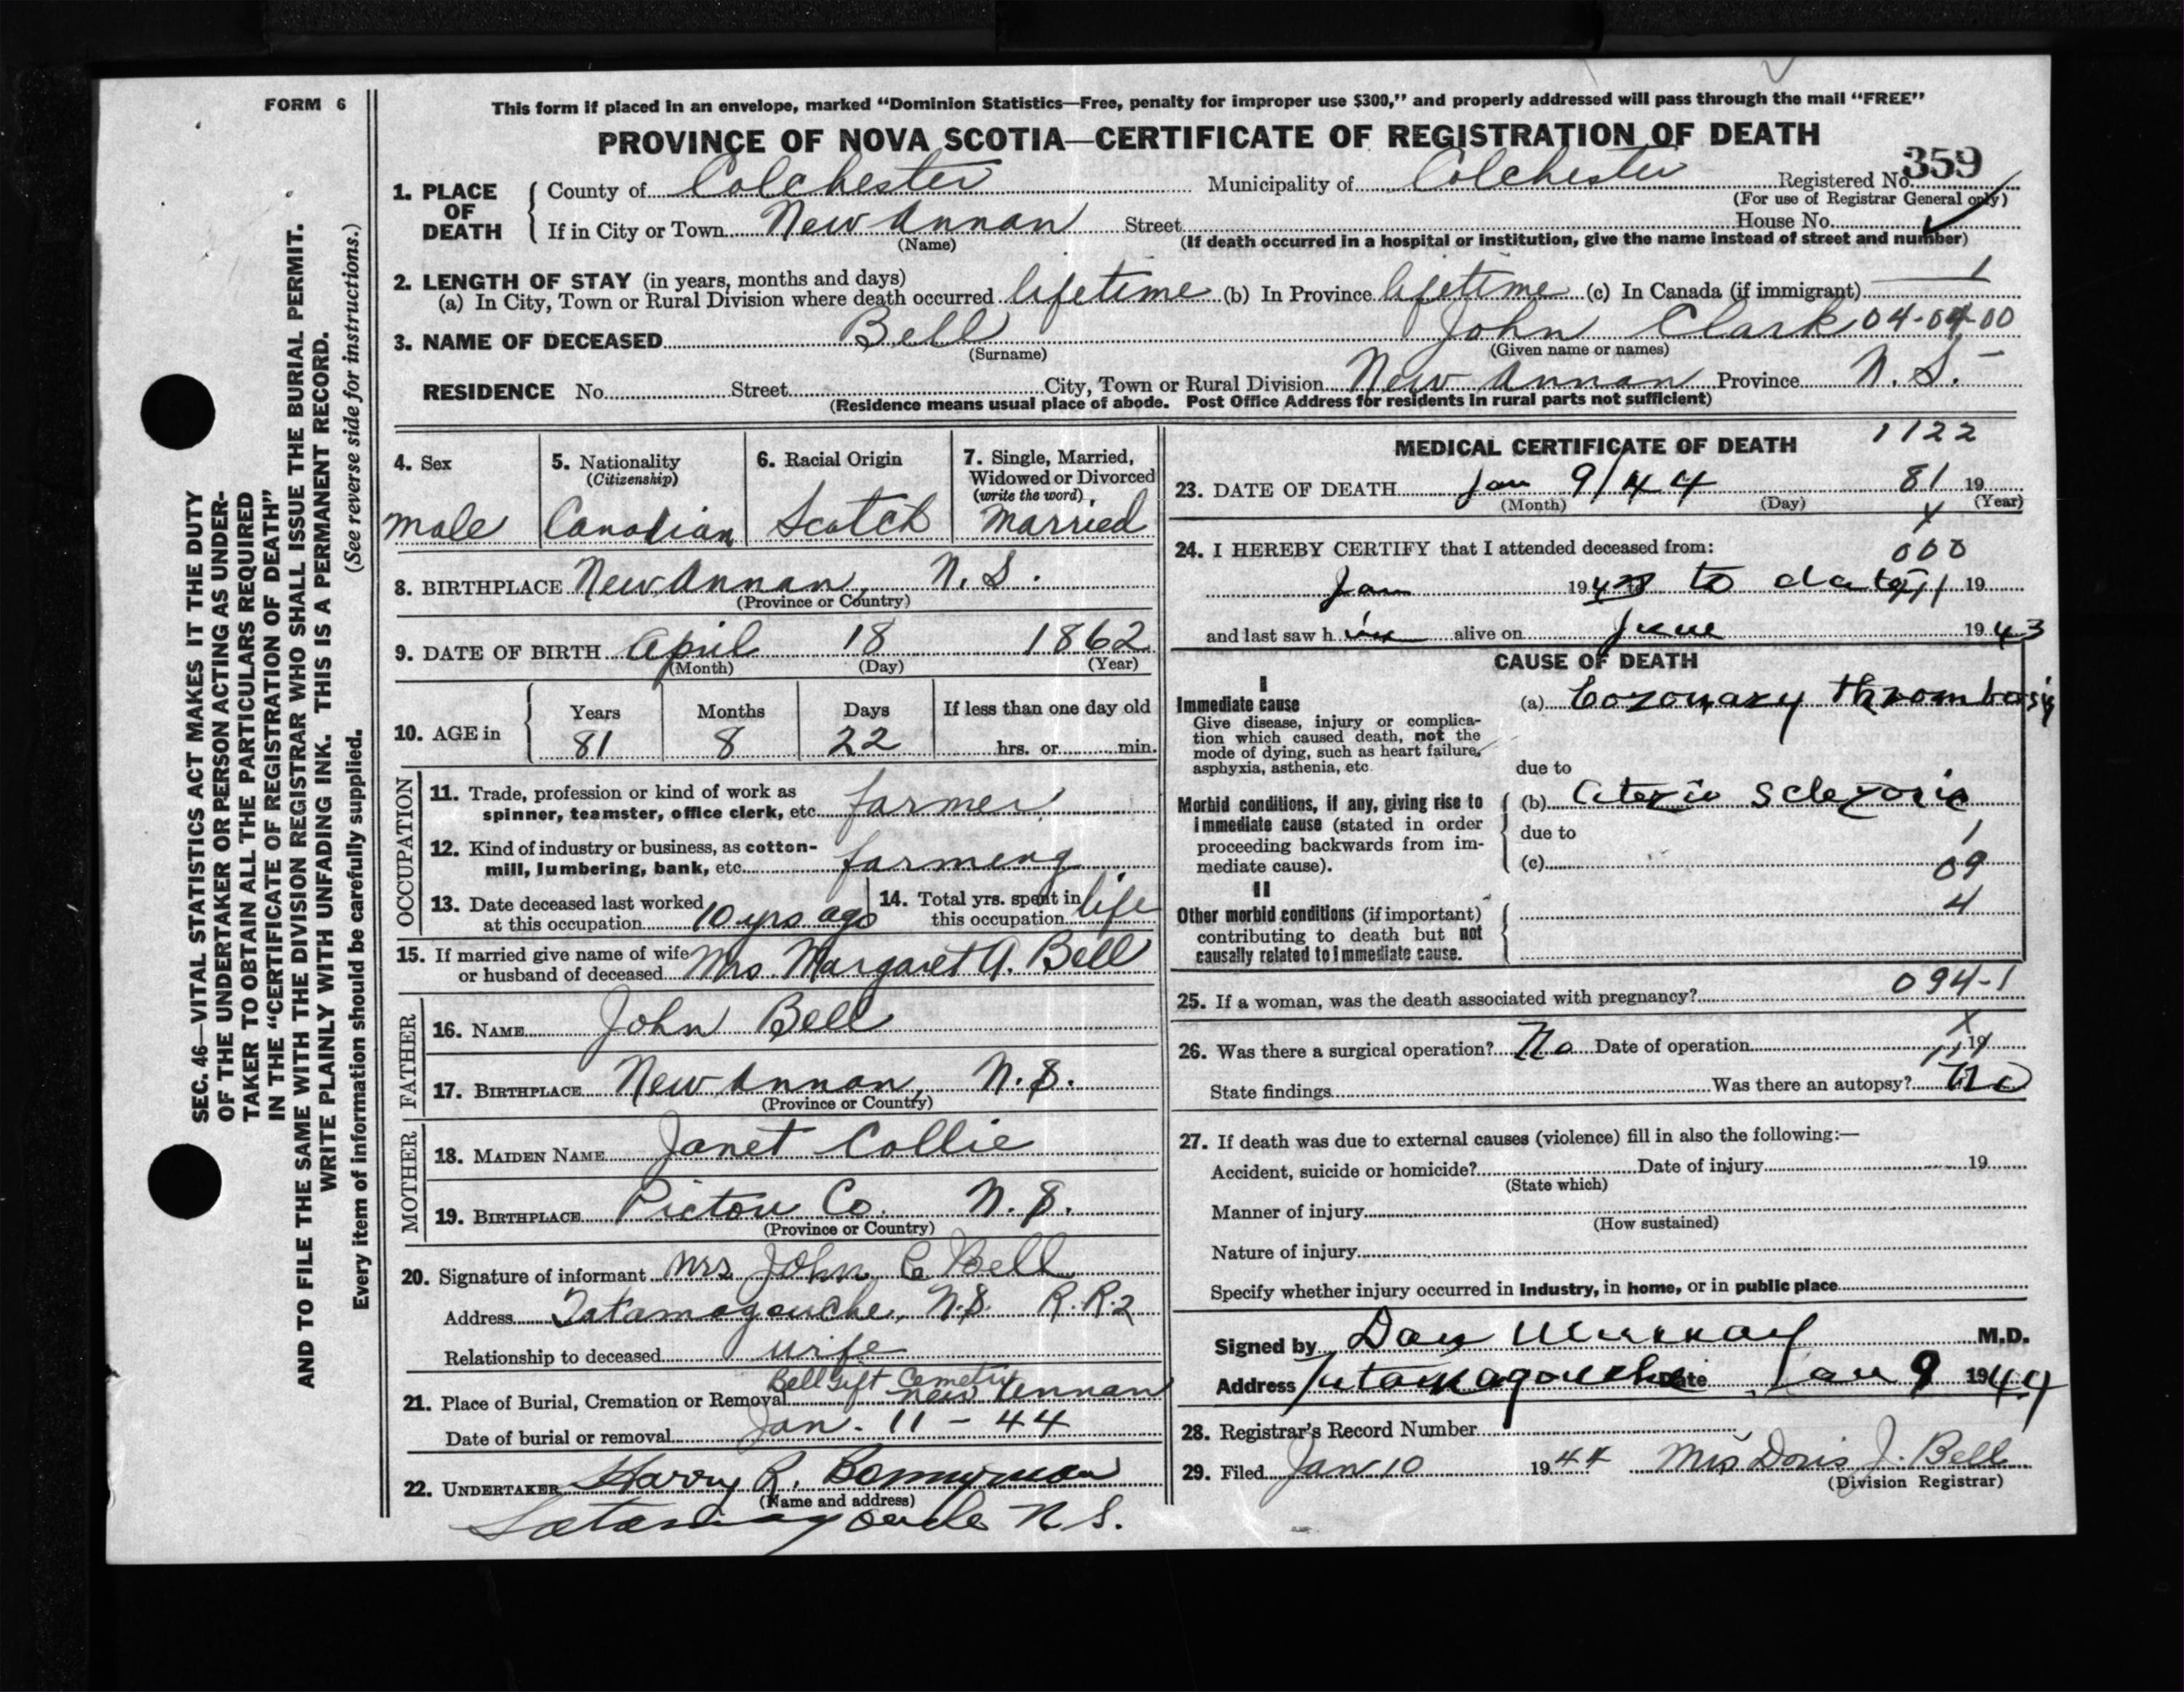 FORM 6
SEC. 46—VITAL STATISTICS ACT MAKES IT THE DUTY
OF THE UNDERTAKER OR PERSON ACTING AS UNDER-
TAKER TO OBTAIN ALL THE PARTICULARS REQUIRED
IN THE "CERTIFICATE OF REGISTRATION OF DEATH"
AND TO FILE THE SAME WITH THE DIVISION REGISTRAR WHO SHALL ISSUE THE BURIAL PERMIT.
WRITE PLAINLY WITH UNFADING INK. THIS IS A PERMANENT RECORD.
Every item of information should be carefully supplied. (See reverse side for instructions.)
This form if placed in an envelope, marked "Dominion Statistics—Free, penalty for improper use $300," and properly addressed will pass through the mail "FREE"
PROVINCE OF NOVA SCOTIA—CERTIFICATE OF REGISTRATION OF DEATH
1. PLACE OF DEATH County of Colchester Municipality of Colchester Registered No. 359
(For use of Registrar General only)
If in City or Town New Annan Street House No.
(Name) (If death occurred in a hospital or institution, give the name instead of street and number)
2. LENGTH OF STAY (in years, months and days) 1
(a) In City, Town or Rural Division where death occurred lifetime (b) In Province lifetime (c) In Canada (if immigrant)
3. NAME OF DECEASED Bell John Clark 04-04-00
(Surname) (Given name or names)
RESIDENCE No. Street City, Town or Rural Division New Annan Province N.S.
(Residence means usual place of abode. Post Office Address for residents in rural parts not sufficient)
4. Sex 5. Nationality (Citizenship) 6. Racial Origin 7. Single, Married, Widowed or Divorced (write the word)
male Canadian Scotch Married
8. BIRTHPLACE New Annan, N.S.
(Province or Country)
9. DATE OF BIRTH April 18 1862
(Month) (Day) (Year)
10. AGE in Years Months Days If less than one day old
81 8 22 hrs. or min.
OCCUPATION
11. Trade, profession or kind of work as
spinner, teamster, office clerk, etc. farmer
12. Kind of industry or business, as cotton-
mill, lumbering, bank, etc. farming
13. Date deceased last worked
at this occupation 10 yrs ago
14. Total yrs. spent in
this occupation life
15. If married give name of wife
or husband of deceased Mrs. Margaret A. Bell
FATHER
16. NAME John Bell
17. BIRTHPLACE New Annan, N.S.
(Province or Country)
MOTHER
18. MAIDEN NAME Janet Collie
19. BIRTHPLACE Pictou Co. N.S.
(Province or Country)
20. Signature of informant Mrs John C Bell
Address Tatamagouche, N.S. R.R.2
Relationship to deceased wife
Bell Cemetry
21. Place of Burial, Cremation or Removal New Annan
Date of burial or removal Jan. 11 - 44
22. UNDERTAKER Harry R. Bonnyman
(Name and address)
Tatamagouche N.S.
MEDICAL CERTIFICATE OF DEATH 1122
23. DATE OF DEATH Jan 9/44 81 19
(Month) (Day) (Year)
X
24. I HEREBY CERTIFY that I attended deceased from: 000
Jan 19 to date 19
and last saw h im alive on June 19 43
CAUSE OF DEATH
I
Immediate cause
Give disease, injury or complica-
tion which caused death, not the
mode of dying, such as heart failure,
asphyxia, asthenia, etc.
(a) Coronary thrombosis
due to
Morbid conditions, if any, giving rise to
immediate cause (stated in order
proceeding backwards from im-
mediate cause).
(b) Aterio Sclerosis
due to
1
(c) 09
II
4
Other morbid conditions (if important)
contributing to death but not
causally related to immediate cause.
094-1
25. If a woman, was the death associated with pregnancy?
X
26. Was there a surgical operation? No Date of operation 19
State findings Was there an autopsy? No
27. If death was due to external causes (violence) fill in also the following:—
Accident, suicide or homicide? Date of injury 19
(State which)
Manner of injury
(How sustained)
Nature of injury
Specify whether injury occurred in Industry, in home, or in public place
Signed by Dan Murray M.D.
Address Tatamagouche Date Jan 9 1944
28. Registrar's Record Number
29. Filed Jan 10 1944 Mrs Doris J. Bell
(Division Registrar)